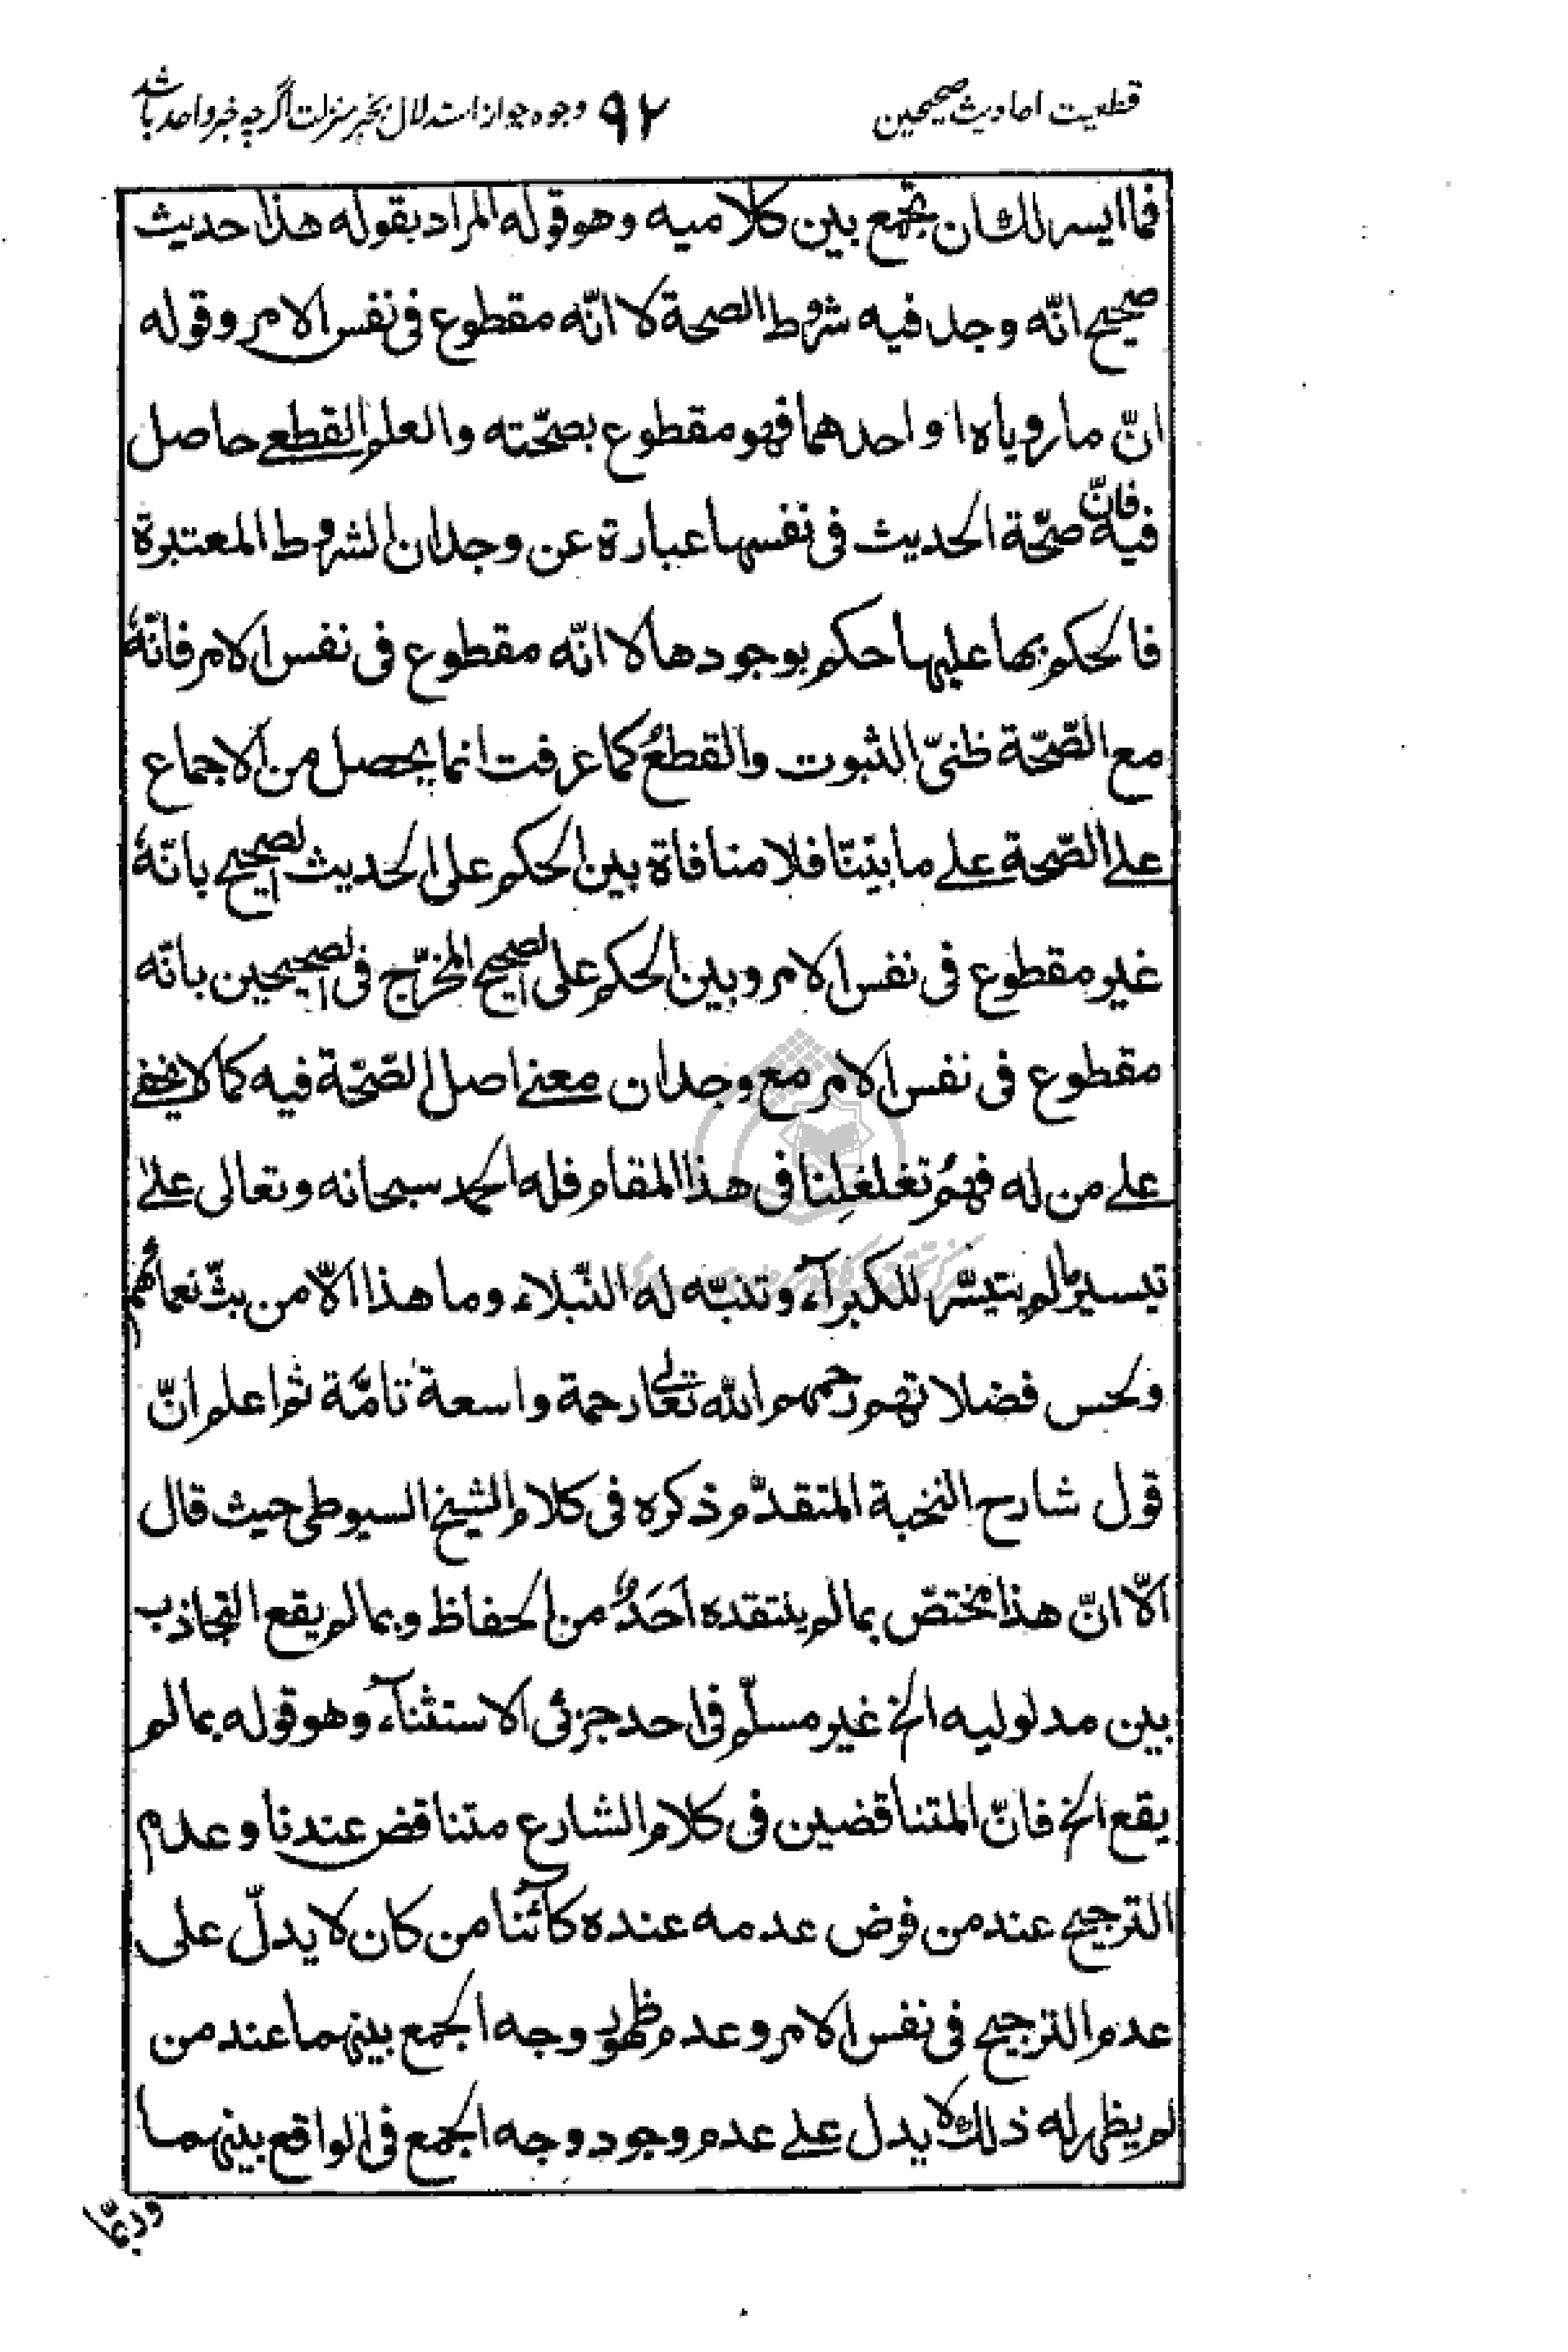 قطعیت احادیث صحیحین ۹۲ وجوه جواز استدلال بخبر منزلت اگرچه خبر واحد باشد
فما ايسر لك ان تجمع بين كلاميه وهو قوله المراد بقوله هذا حديث
صحيح انّه وجد فيه شروط الصحة لا انّه مقطوع فى نفس الامر وقوله
انّ ما روياه او احدهما فهو مقطوع بصحّته والعلم القطعے حاصل
فيه فانّ صحّة الحديث فى نفسها عبارة عن وجدان الشروط المعتبرة
فالحكم بها عليها حكم بوجودها لا انّه مقطوع فى نفس الامر فانّهٗ
مع الصّحّة ظنىّ الثبوت والقطعُ كما عرفت انما يحصل من الاجماع
علے الصّحة علے ما بيّنّا فلا منافاة بين الحكم على الحديث الصحيح بانّهٗ
غير مقطوع فى نفس الامر وبين الحكم على الصحيح المخرّج فى الصحيحين بانّه
مقطوع فى نفس الامر مع وجدان معنے اصل الصّحّة فيه كما لا يخفے
علے من له فهمٌ تغلغل لنا فى هذا المقام فله الحمد سبحانه وتعالى علىٰ
تيسير ما لم يتيسّر للكبرآء وتنبّه له النّبلاء وما هذا الّا من بثّ نعمائهم
ولحس فضلاتهم رحمهم الله تعالى رحمة واسعةً تامّة ثم اعلم انّ
قول شارح النخبة المتقدّم ذكره فى كلام الشيخ السيوطى حيث قال
الّا انّ هذا مختصّ بما لم ينتقده اَحَدٌ من الحفاظ وبما لم يقع التجاذب
بين مدلوليه الخ غير مسلّم فى احد جزئى الاستثنآء وهو قوله بما لم
يقع الخ فانّ المتناقضين فى كلام الشارع متناقض عندنا وعدم
الترجيح عند من فرض عدمه عنده كآئنا من كان لا يدلّ على
عدم الترجيح فى نفس الامر وعدم ظهور وجه الجمع بينهما عند من
لم يظهر له ذلك لا يدل علے عدم وجود وجه الجمع فى الواقع بينهما
وربّما